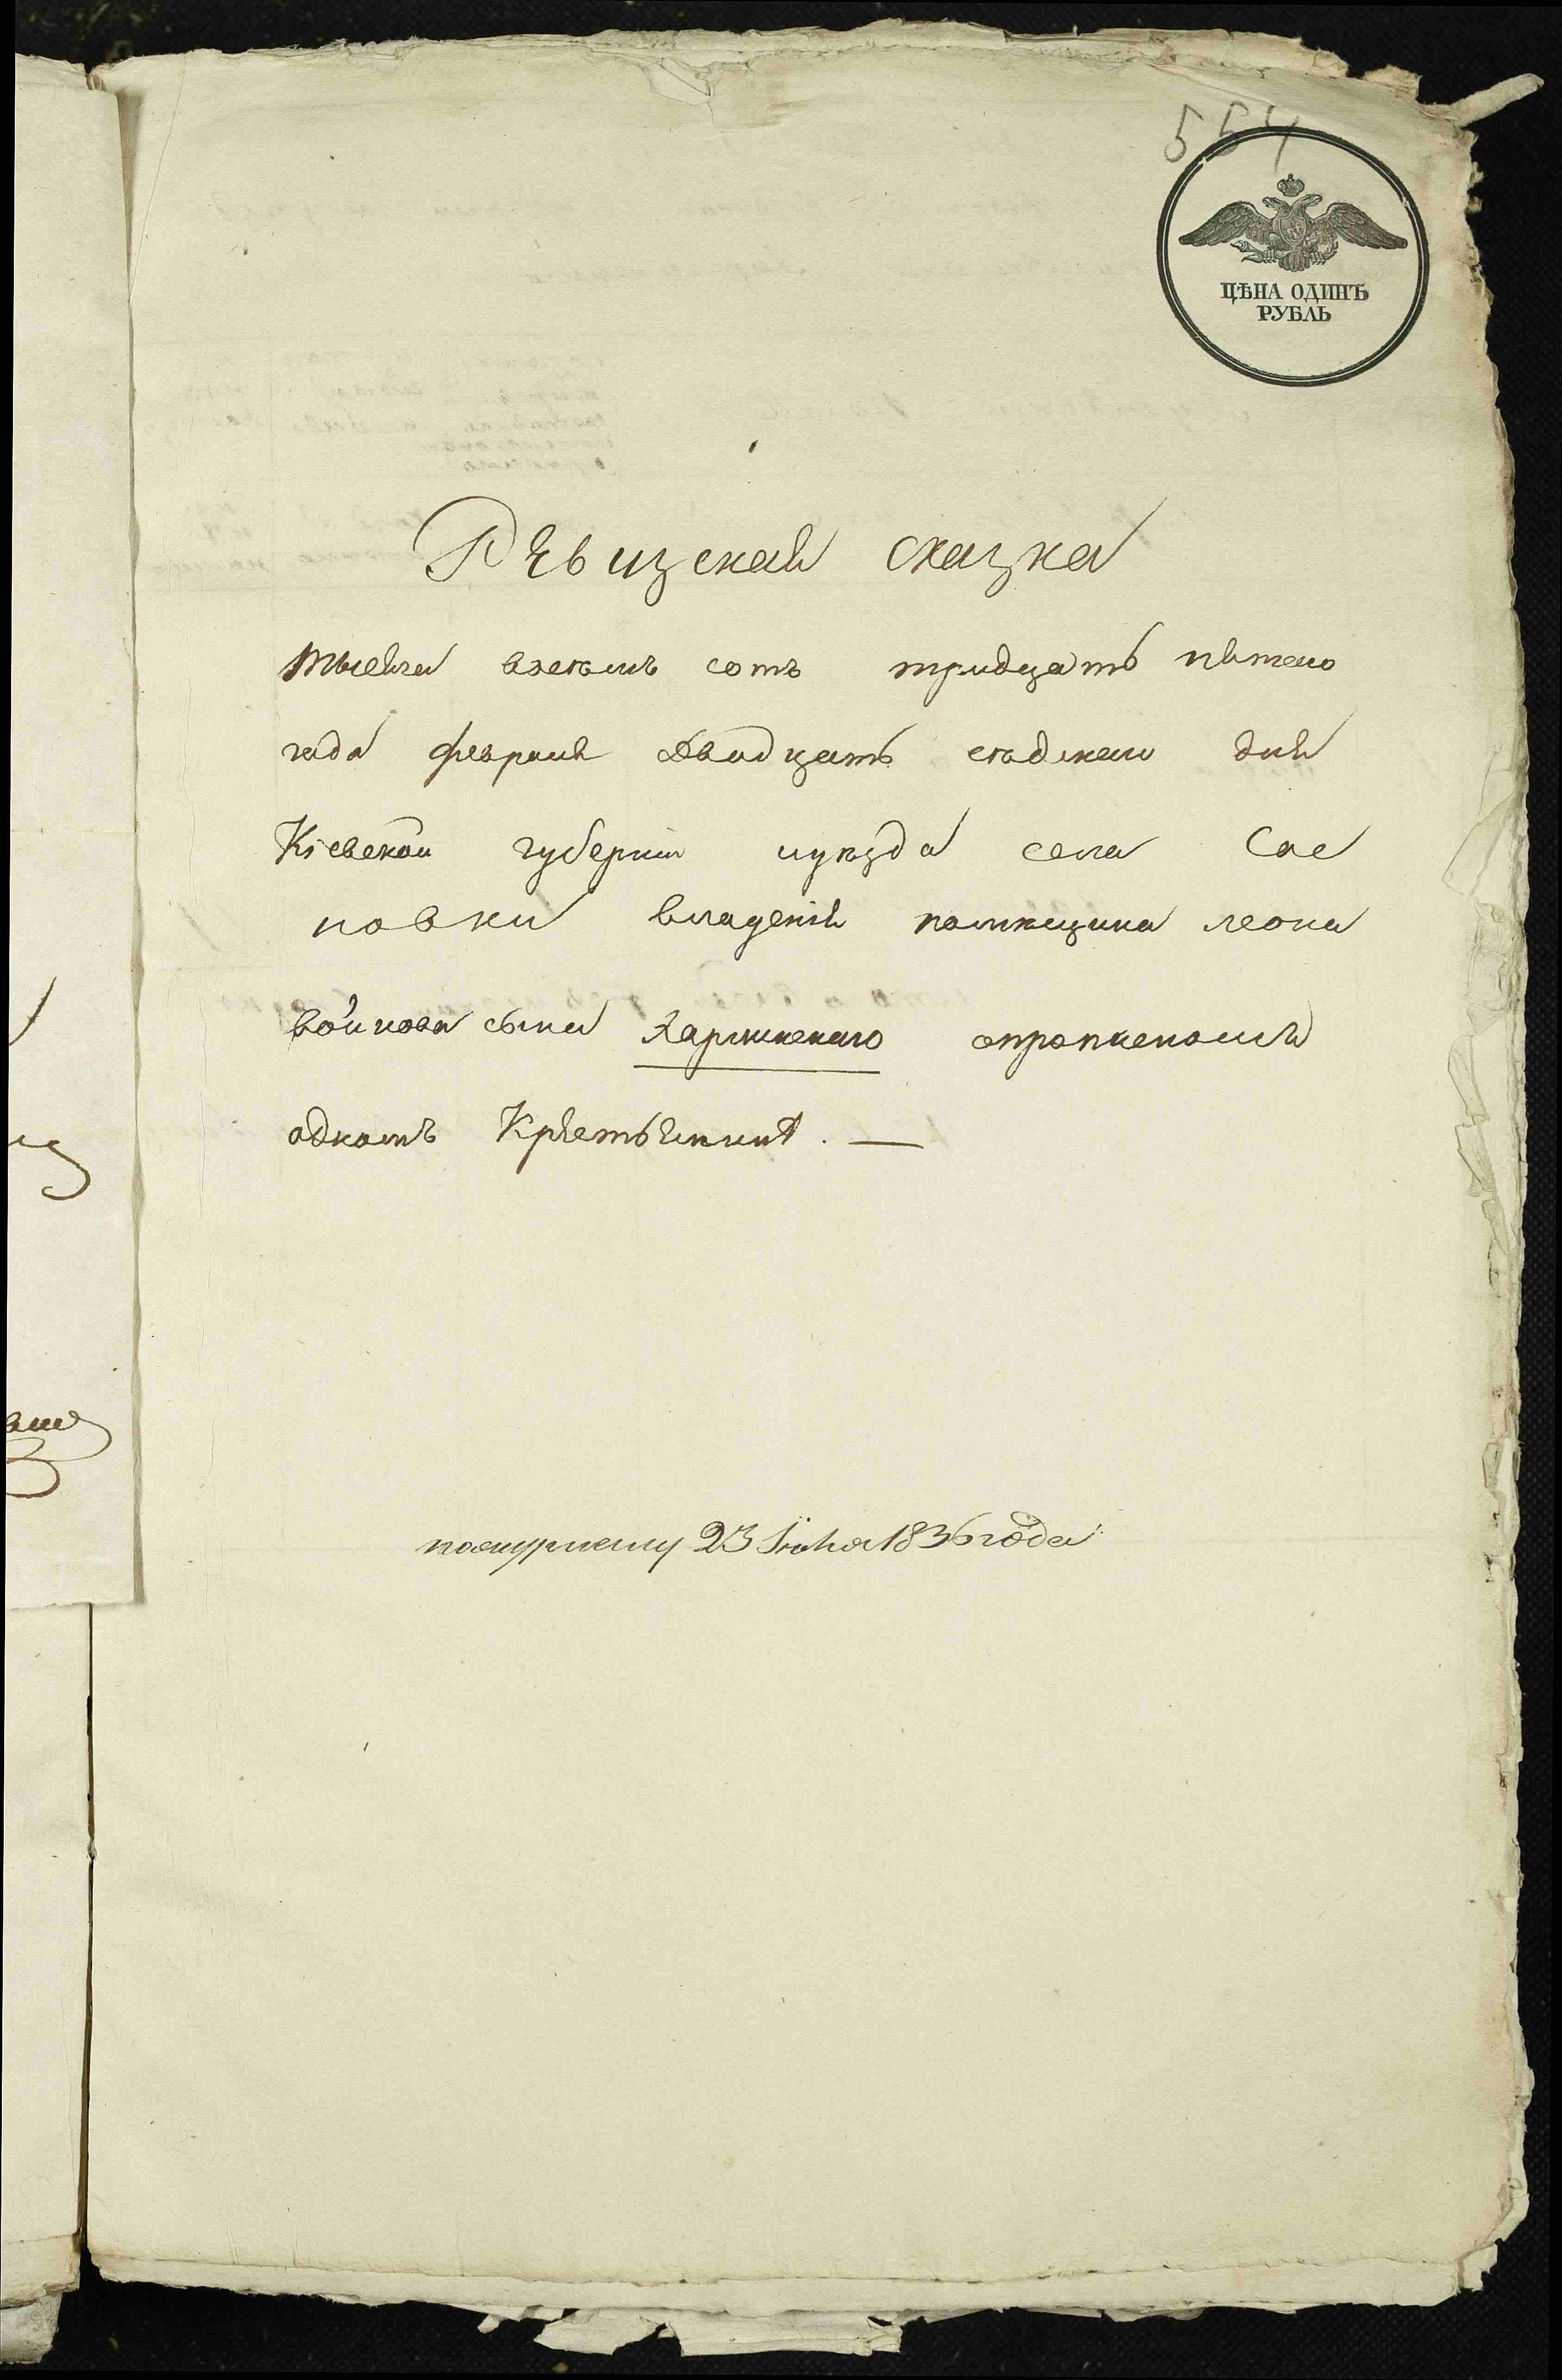 554
ЦѢНА ОДИНЪ
РУБЛЬ
Ревизская сказка
тысяча восемъ сотъ тридцать пятого
года февраля двадцать седмаго дня
Кіевской губерніи и уезда села Сос
новки владенія помещика леона
войнова сына опрописномъ
одномъ Крестьянине. —
23 Іюня 1836 года